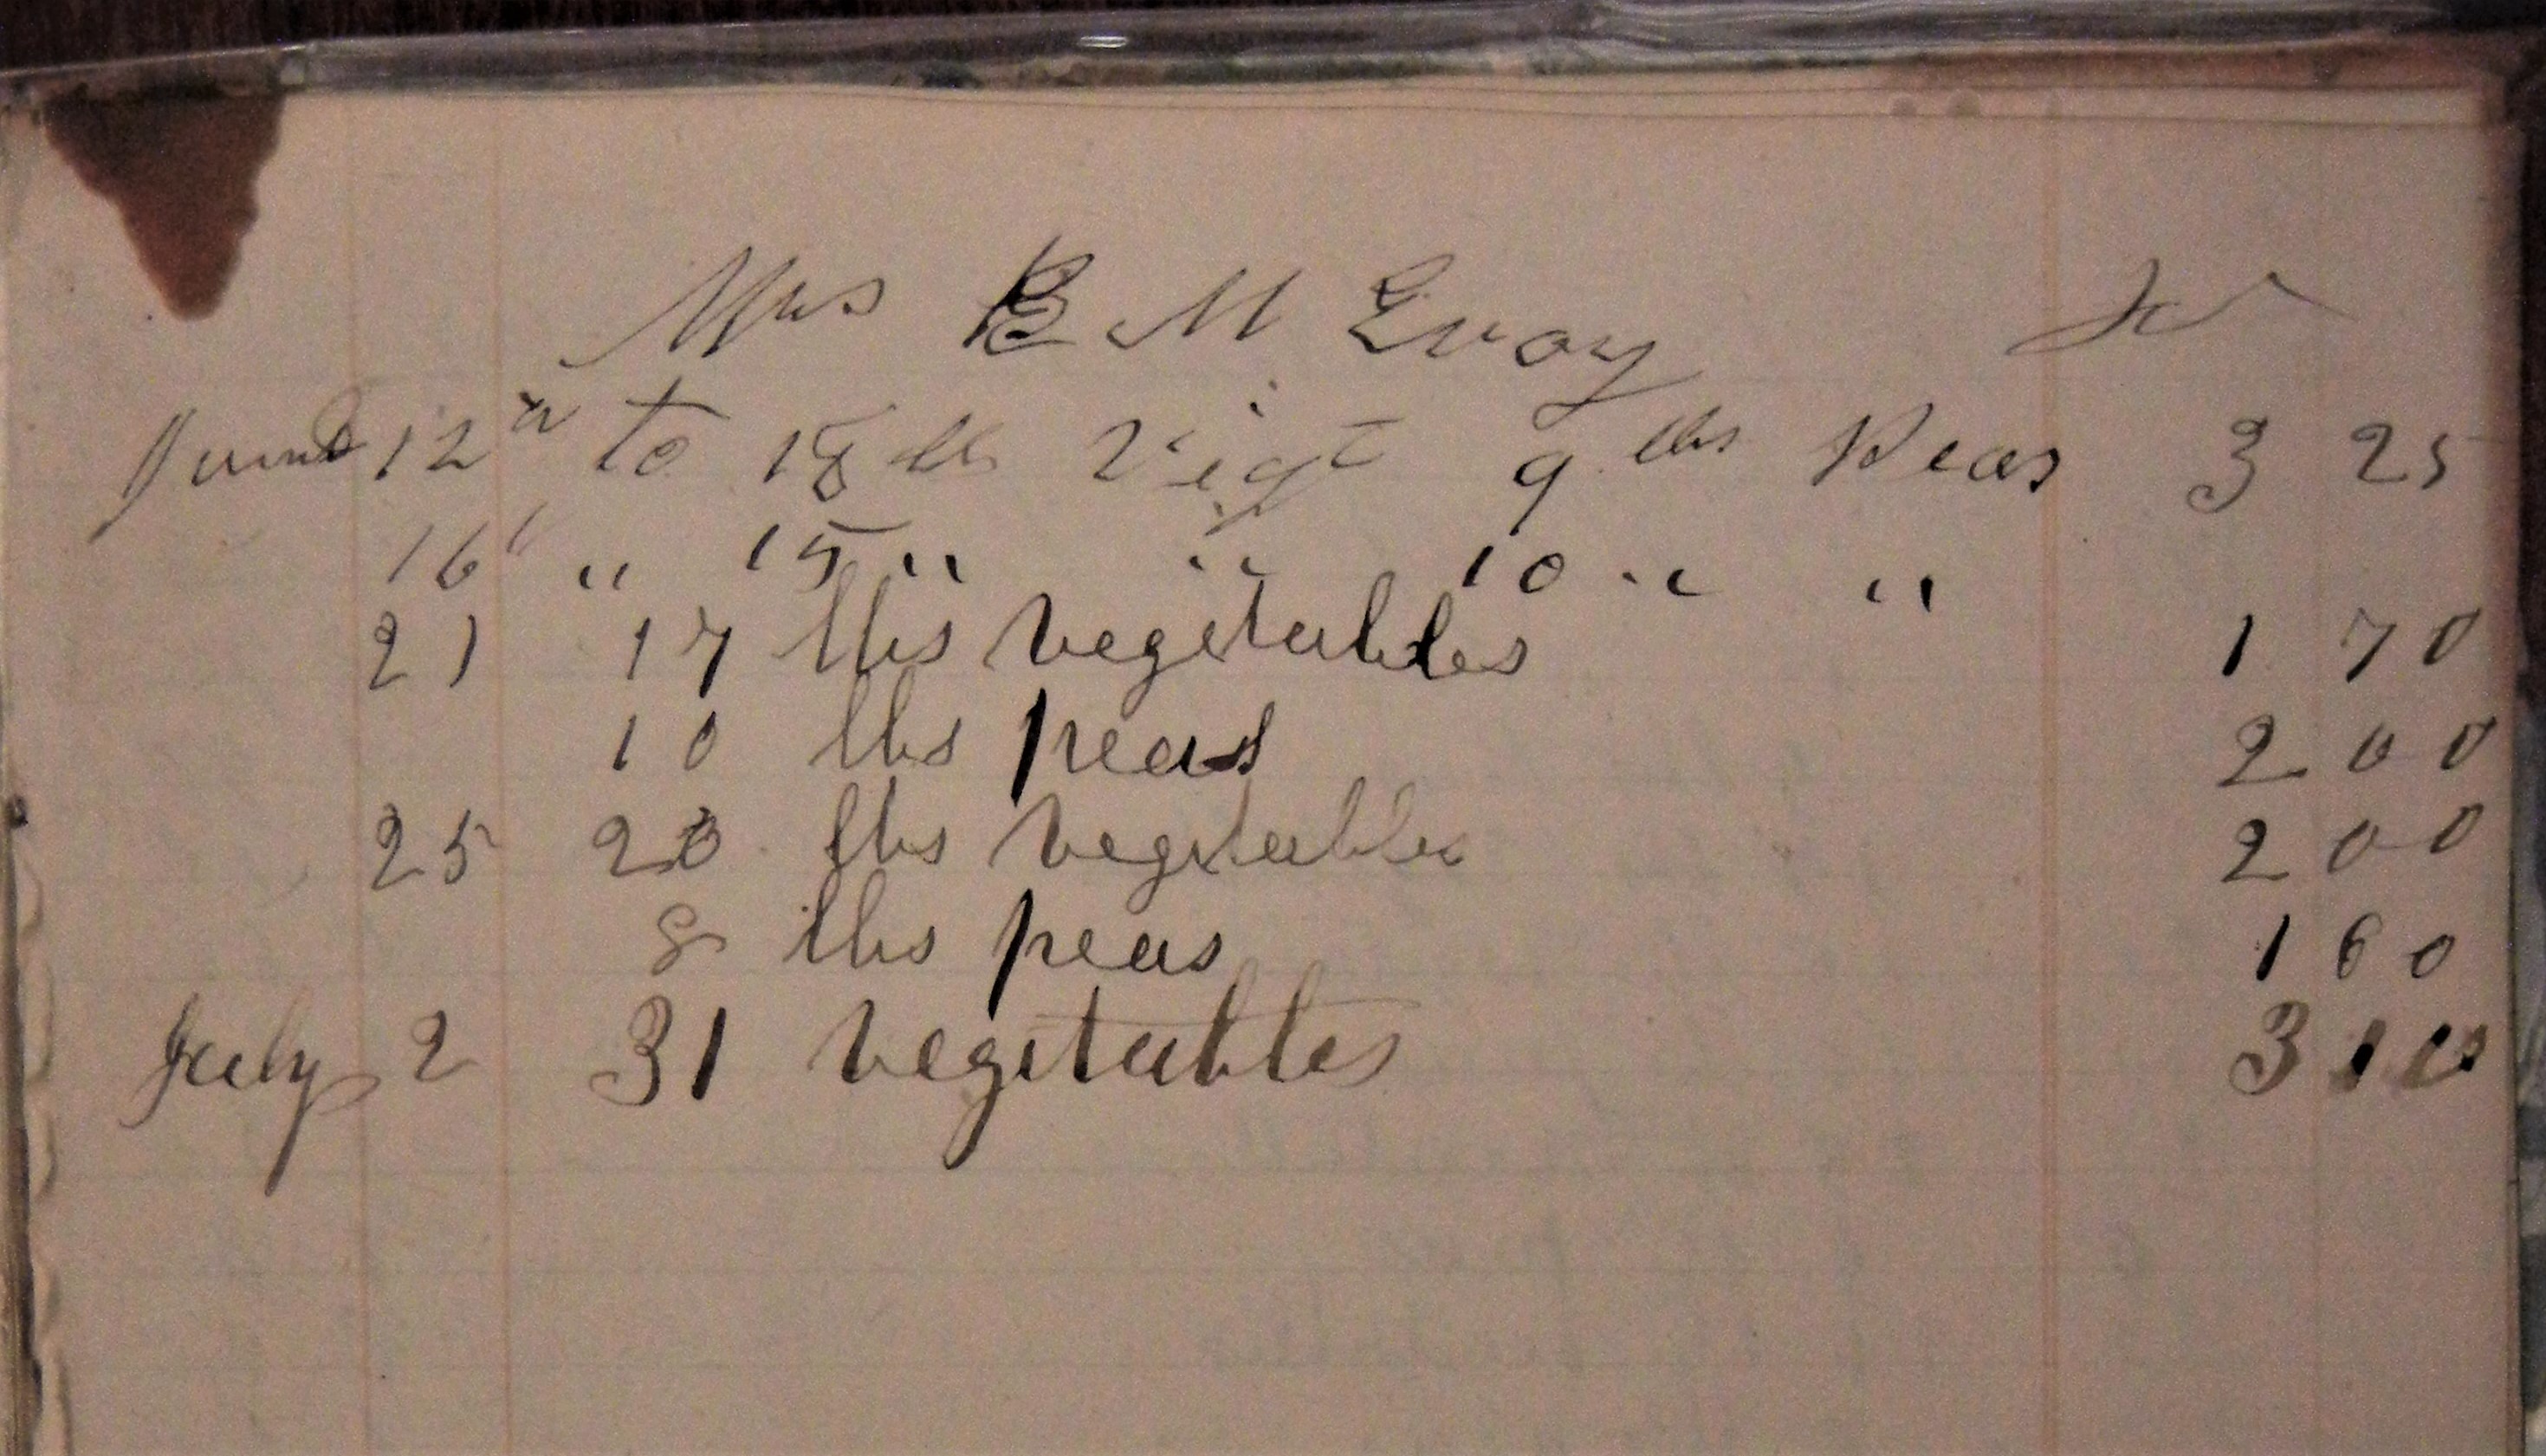 Mrs B M Evoy Dr
June 12 to 18 lb Vigt 9 lbs Peas 3 25
16 " 15 " " 10 " "
21 17 lbs vegetables 1 70
10 lbs peas 2 00
25 20 lbs vegetables 2 00
8 lbs peas 1 60
July 2 31 vegetables 3 10